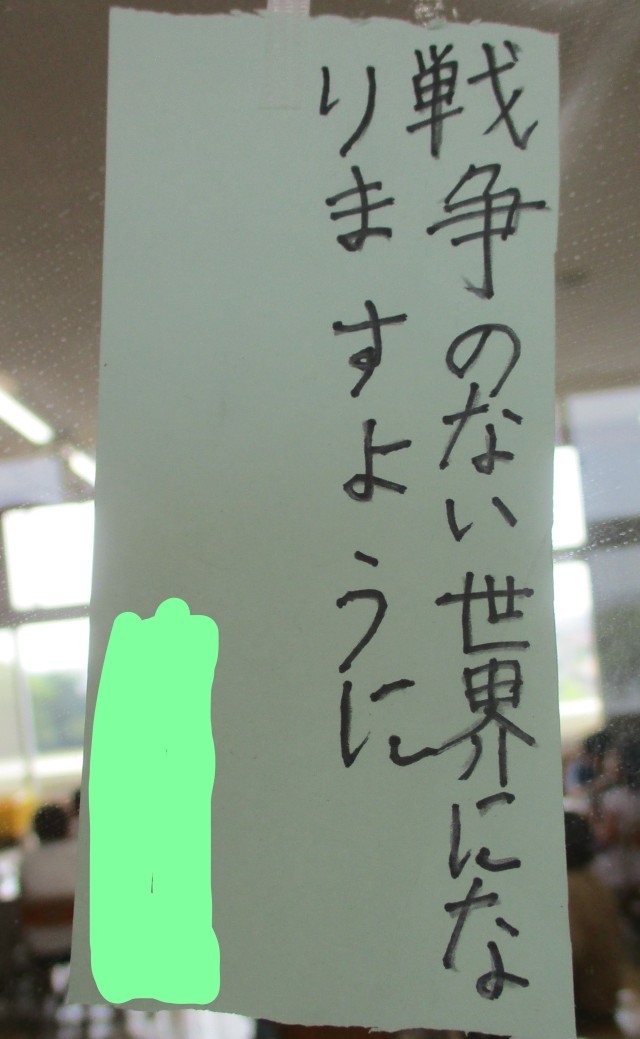 戦争のない世界にな
りますように